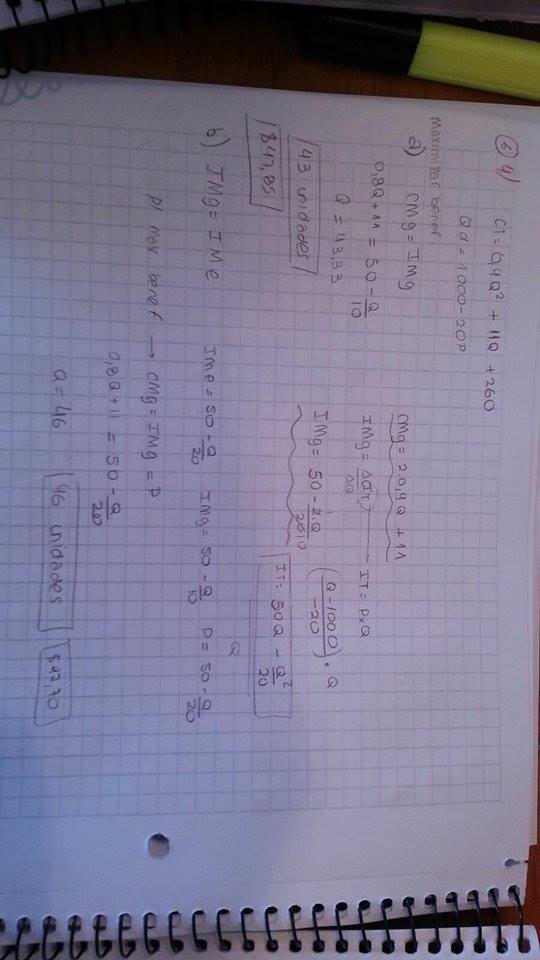 6 4)
CT = 0,4Q² + 11Q + 260
Qd = 1000 - 20P
Maximizar benef
a) CMg = IMg
0,8Q + 11 = 50 - Q/10
Q = 43,33
43 unidades
$47,85
CMg = 2 0,4Q + 11
IMg = Δ(IT)/ΔQ — IT = P×Q
IMg = 50 - 2.Q/20 10
(Q - 1000/-20) . Q
IT = 50Q - Q²/20
Q
b) IMg = IMe IMe = 50 - Q/20 IMg = 50 - Q/10 P = 50 - Q/20
p/ max benef → CMg = IMg = P
0,8Q + 11 = 50 - Q/20
Q = 46 46 unidades $47,70